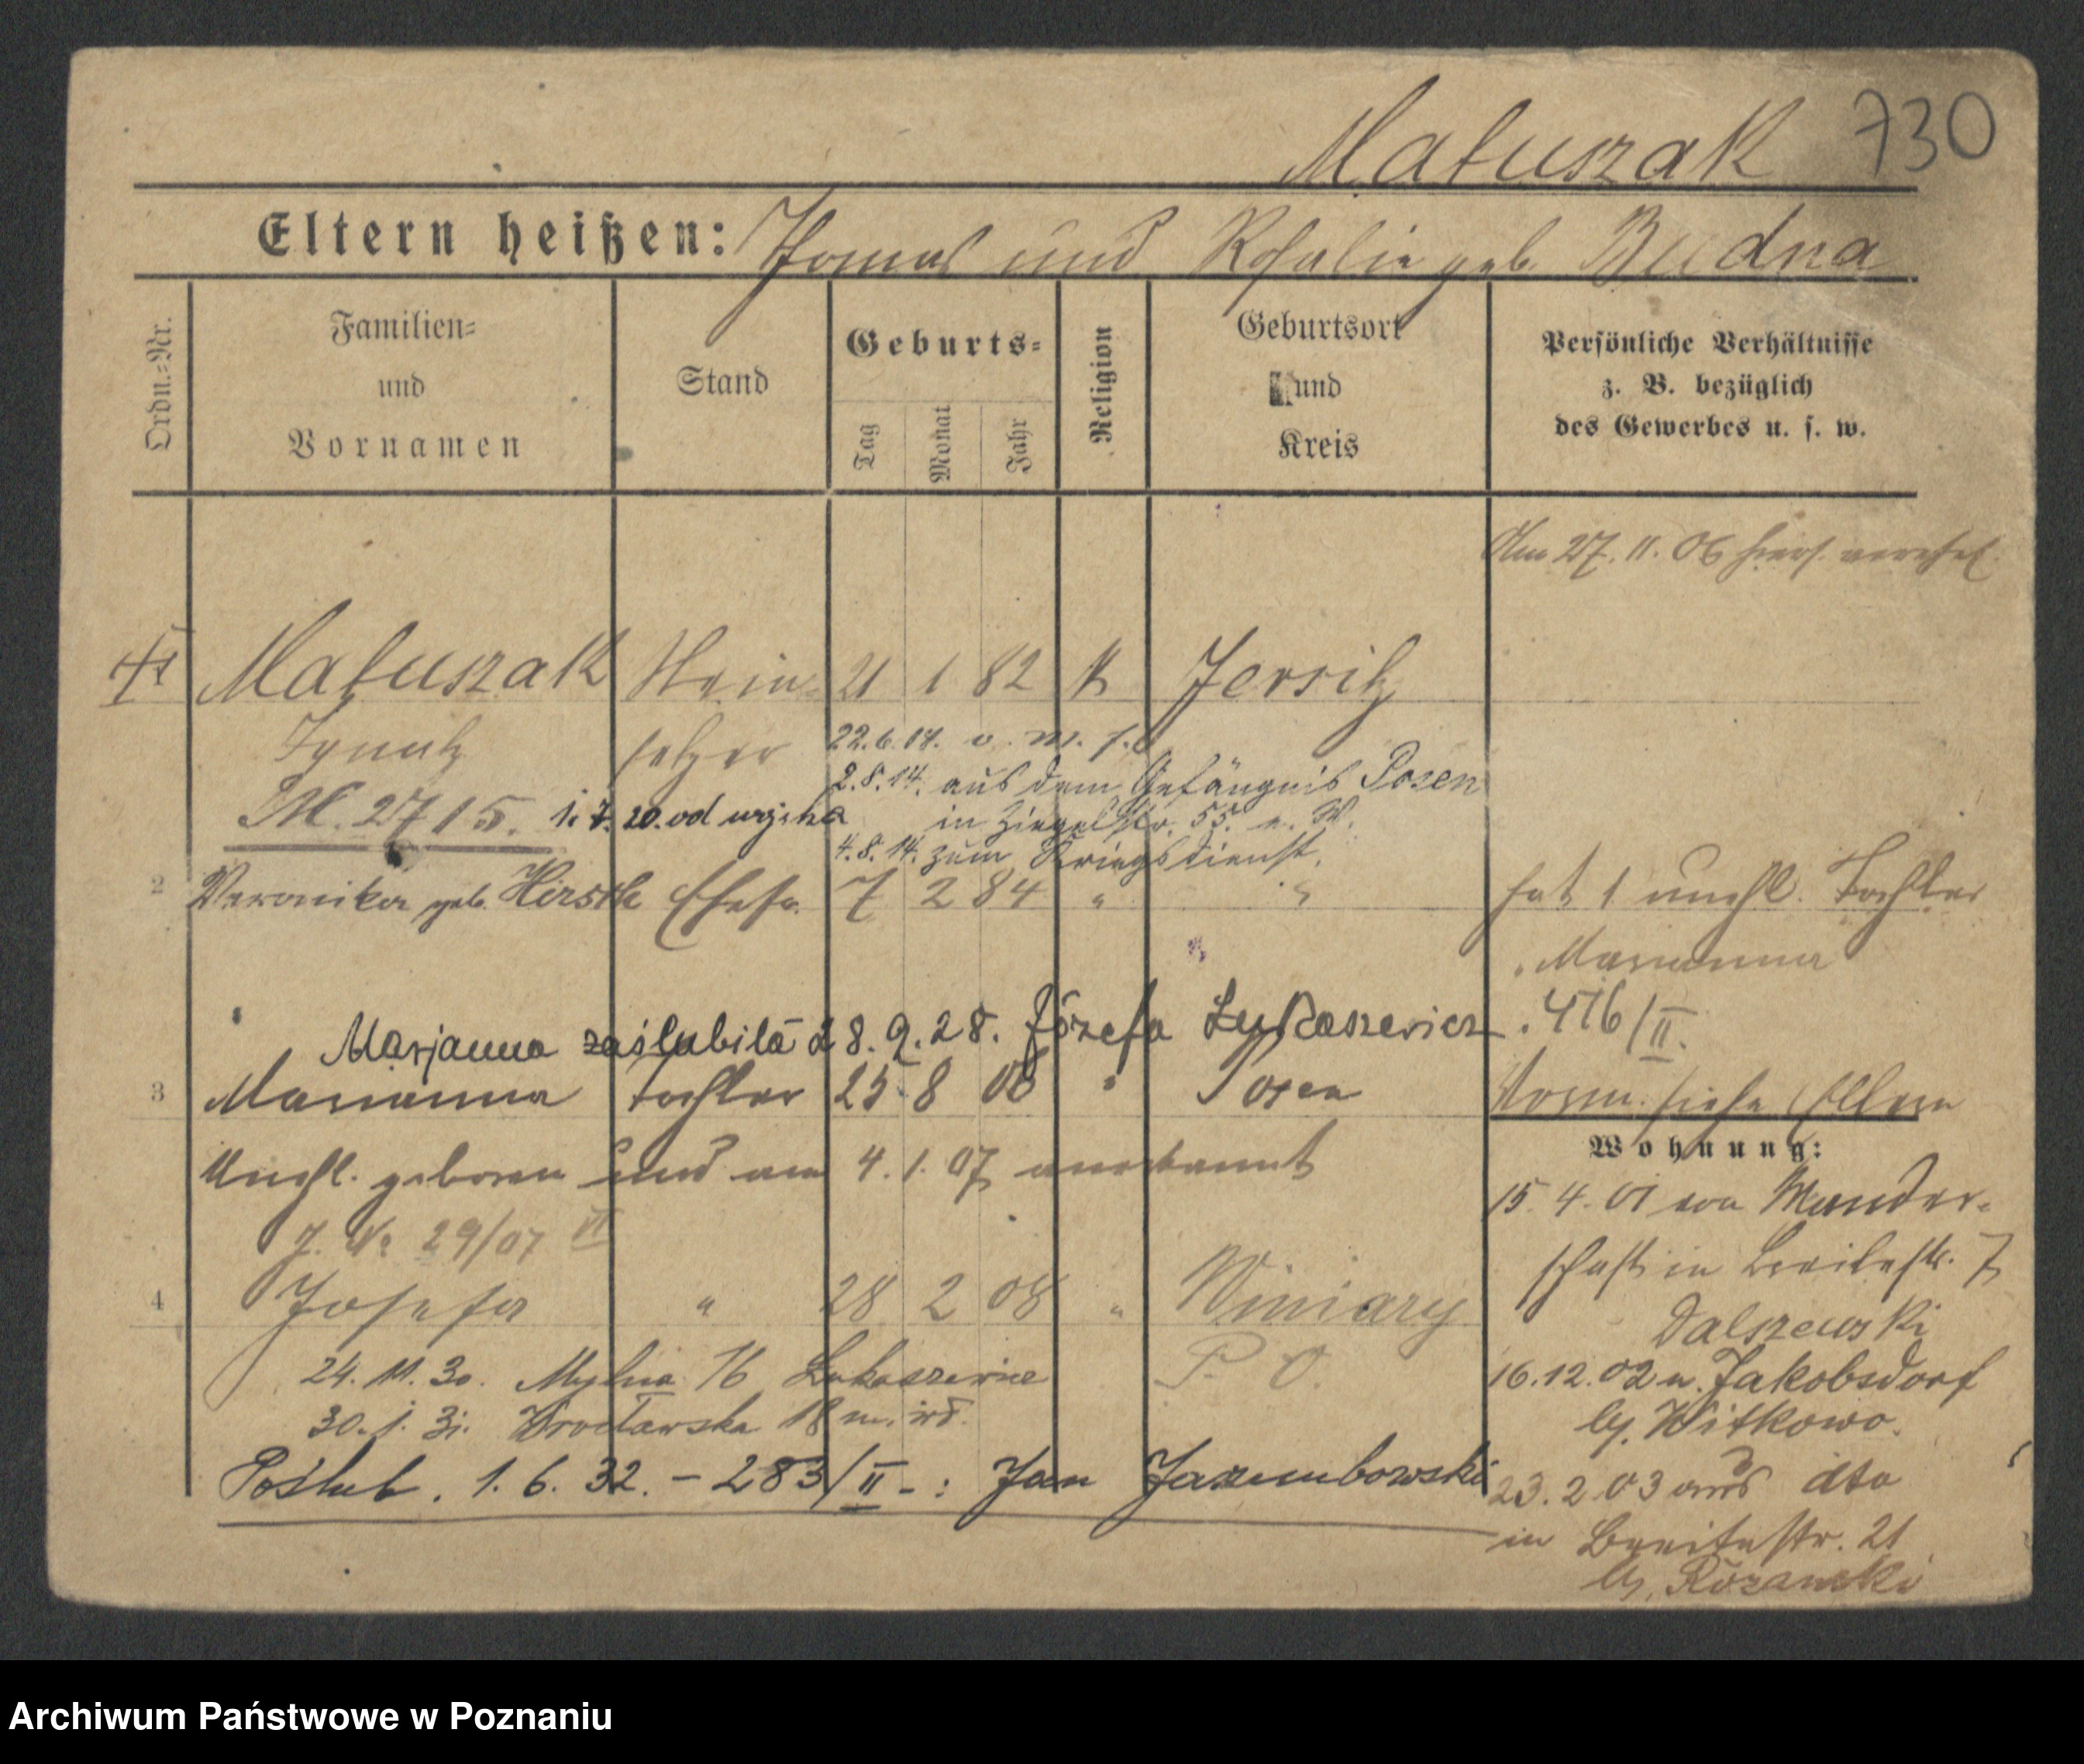 Matuszak 730
Eltern heißen: Thomas und Rosalie geb. Budna
Ordn.-Nr.
Familien-
und
Vornamen
Stand
Geburts-
Tag
Monat
Jahr
Religion
Geburtsort
und
Kreis
Persönliche Verhältnisse
z. B. bezüglich
des Gewerbes u. s. w.
Am 27. 11. 06 hiers. verehel.
Matuszak Stein- 21 1 82 k Jersitz
Ignatz setzer 22.6.14. v. m. f.
2.8.14. aus dem Gefängnis Posen
M. 2715. 1. 7. 20. od
in Ziegelstr. 55. e. W.
4.8.14. zum Kriegsdienst.
2 Veronika geb. Hirsch Ehefr. 7 2 84 " " hat 1 unehl. Tochter
Marianna
Marjanna zaślubiła 28.9.28. Józefa Łukaszewicz . 416/II.
3 Marianna Tochter 25 8 06 " Posen Vorm. siehe Eltern
Wohnung:
Unehl. geboren und am 4. 1. 07 anerkannt
15. 4. 01 von Wander-
J. No 29/07 VI
schaft in Breitestr. 7
4 Josefa " 28 2 08 " Winiary
Dalszewski
24. 11. 30. Mylna 16 Łukaszewicz P. O.
16.12.02 n. Jakobsdorf
30. 1. 31. Wrocławska 18 m.
by. Witkowo.
Poślub. 1. 6. 32. - 283/II - : Jan Jarembowski
23. 2 03 aus dto
in Breitestr. 21
by. Rozanski
Archiwum Państwowe w Poznaniu